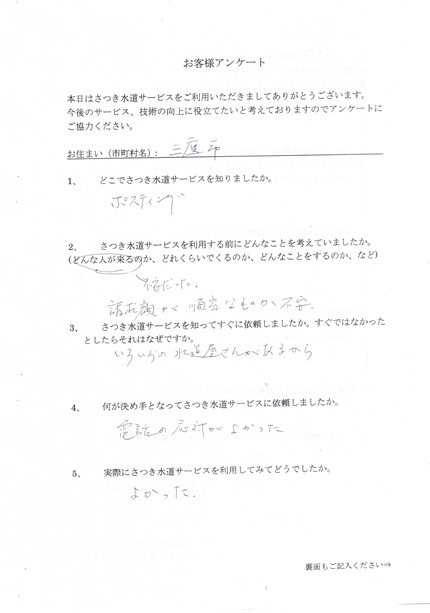 お客様アンケート
本日はさつき水道サービスをご利用いただきましてありがとうございます。
今後のサービス、技術の向上に役立てたいと考えておりますのでアンケートに
ご協力ください。
お住まい（市町村名）： 三鷹市
1、 どこでさつき水道サービスを知りましたか。
ポスティング
2、 さつき水道サービスを利用する前にどんなことを考えていましたか。
(どんな人が来るのか、どれくらいでくるのか、どんなことをするのか、など)
不安だった。
請求額が順当なものか不安。
3、 さつき水道サービスを知ってすぐに依頼しましたか。すぐではなかった
としたらそれはなぜですか。
いろいろの水道屋さんがあるから
4、 何が決め手となってさつき水道サービスに依頼しましたか。
電話の応対がよかった
5、 実際にさつき水道サービスを利用してみてどうでしたか。
よかった.
裏面もご記入ください⇒